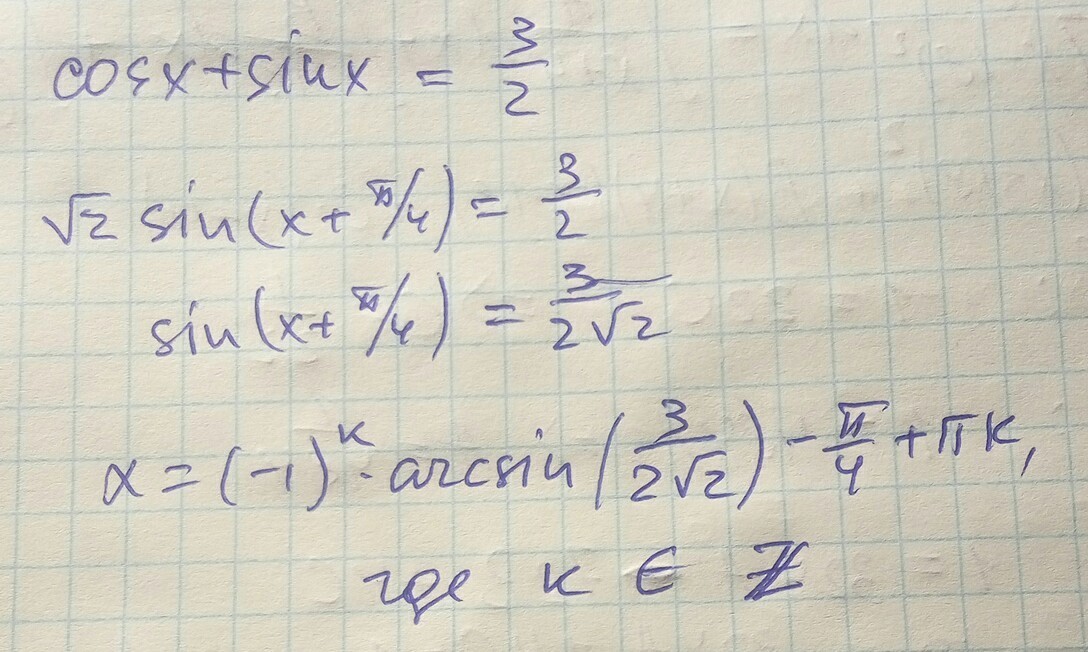 cosx+sinx = 3/2
√2 sin(x+π/4) = 3/2
sin(x+π/4) = 3/(2√2)
x=(-1)^к·arcsin(3/(2√2))-π/4+πк,
где к ∈ ℤ